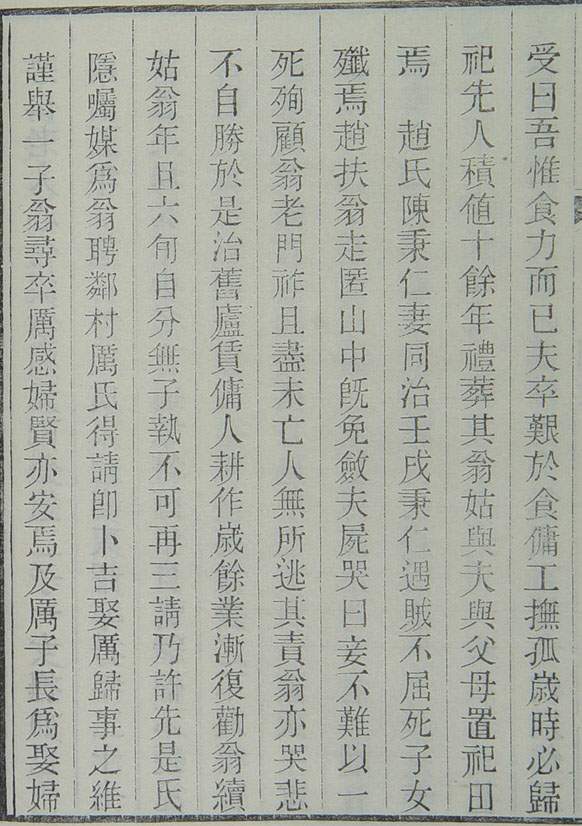 受曰吾惟食力而已夫卒艱於食傭工撫孤歲時必歸
祀先人積值十餘年禮葬其翁姑與夫與父母置祀田
焉　趙氏陳秉仁妻同治壬戌秉仁遇賊不屈死子女
殲焉趙扶翁走匿山中旣免斂夫屍哭曰妾不難以一
死殉顧翁老門祚且盡未亡人無所逃其責翁亦哭悲
不自勝於是治舊廬賃傭人耕作歲餘業漸復勸翁續
姑翁年且六旬自分無子執不可再三請乃許先是氏
隱囑媒爲翁聘鄰村厲氏得請卽卜吉娶厲歸事之維
謹舉一子翁尋卒厲感婦賢亦安焉及厲子長爲娶婦